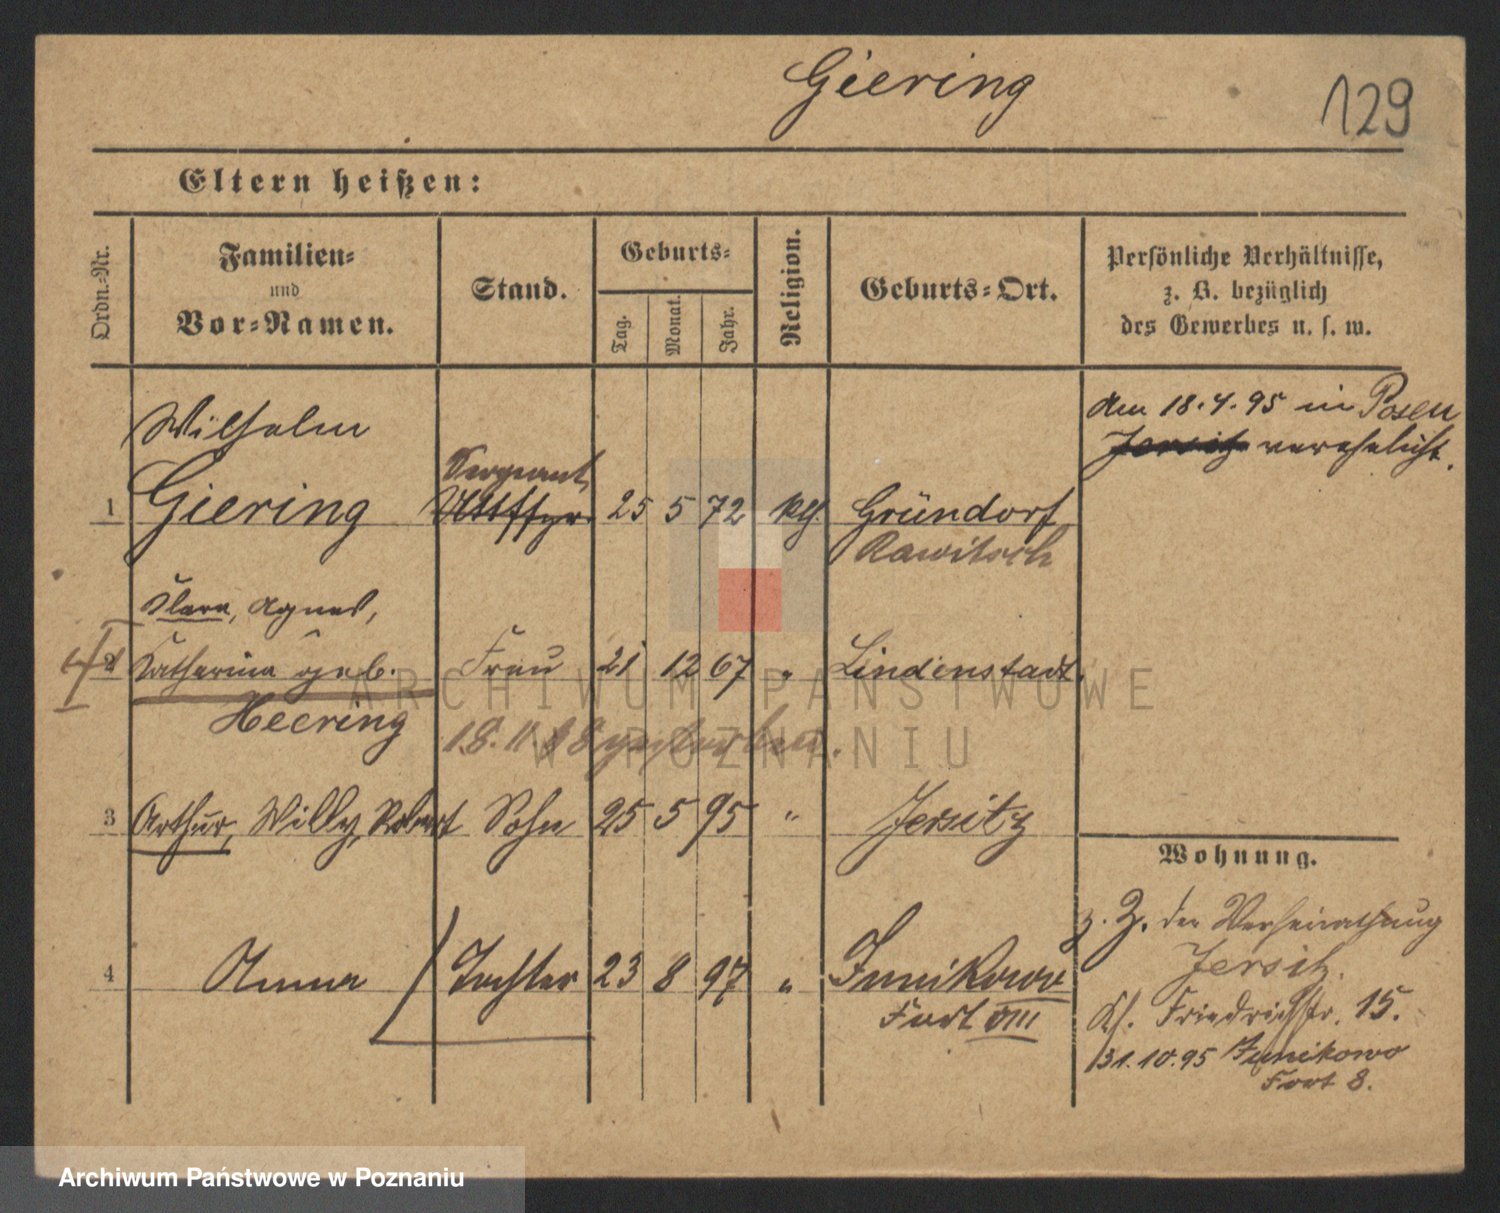 Giering
129
Eltern heißen:
Ordn.-Nr.
Familien-
und
Vor-Namen.
Stand.
Geburts-
Tag.
Monat.
Jahr.
Religion.
Geburts-Ort.
Persönliche Verhältnisse,
z. B. bezüglich
des Gewerbes u. s. w.
den 18.4.95 in Posen
Jersitz verehelicht.
Wilhelm
Sergeant
1 Giering 25 5 72 Gründorf
Rawitsch
Clara, Agnes,
2 Katharina geb. Frau 21 12 67 " Lindenstadt
Heering
18.11.98 gestorben.
3 Arthur, Willy, Robert Sohn 25 5 95 " Jersitz
4 Anna Tochter 23 8 97 " Junikowo
Fort VIII
Wohnung.
z. Z. der Verheirathung
Jersitz.
Friedrichstr. 15.
31.10.95 Junikowo
Fort 8.
ARCHIWUM PAŃSTWOWE
W POZNANIU
Archiwum Państwowe w Poznaniu